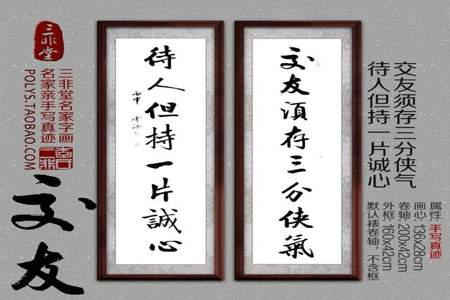 三非堂
三非堂名家字画
名家亲手写真迹
POLYS.TAOBAO.COM
交友
交友須存三分俠氣
待人但持一片誠心
丙申
交友须存三分侠气
待人但持一片诚心
属性:手写真迹
画心:136x28cm
卷轴:200x42cm
外框:160x42cm
默认裱卷轴,不含框